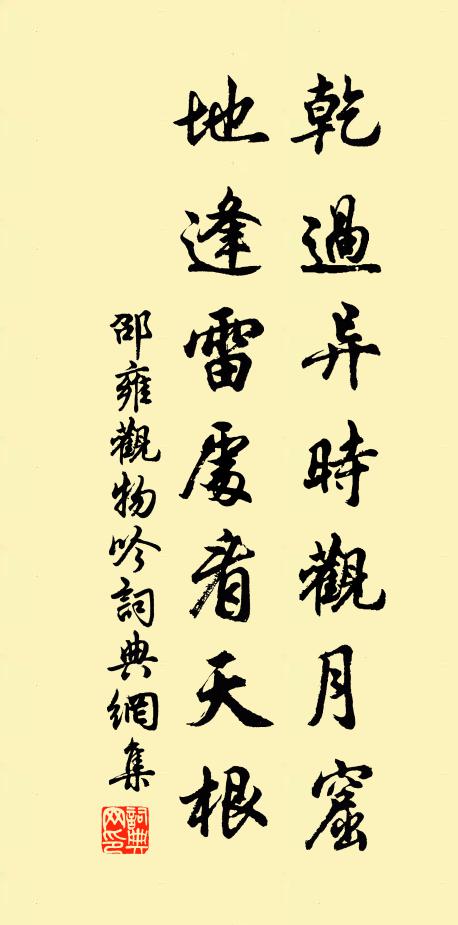 乾過异時觀月窟
地逢雷處看天根
邵雍觀物吟詞典網集
詞典网印